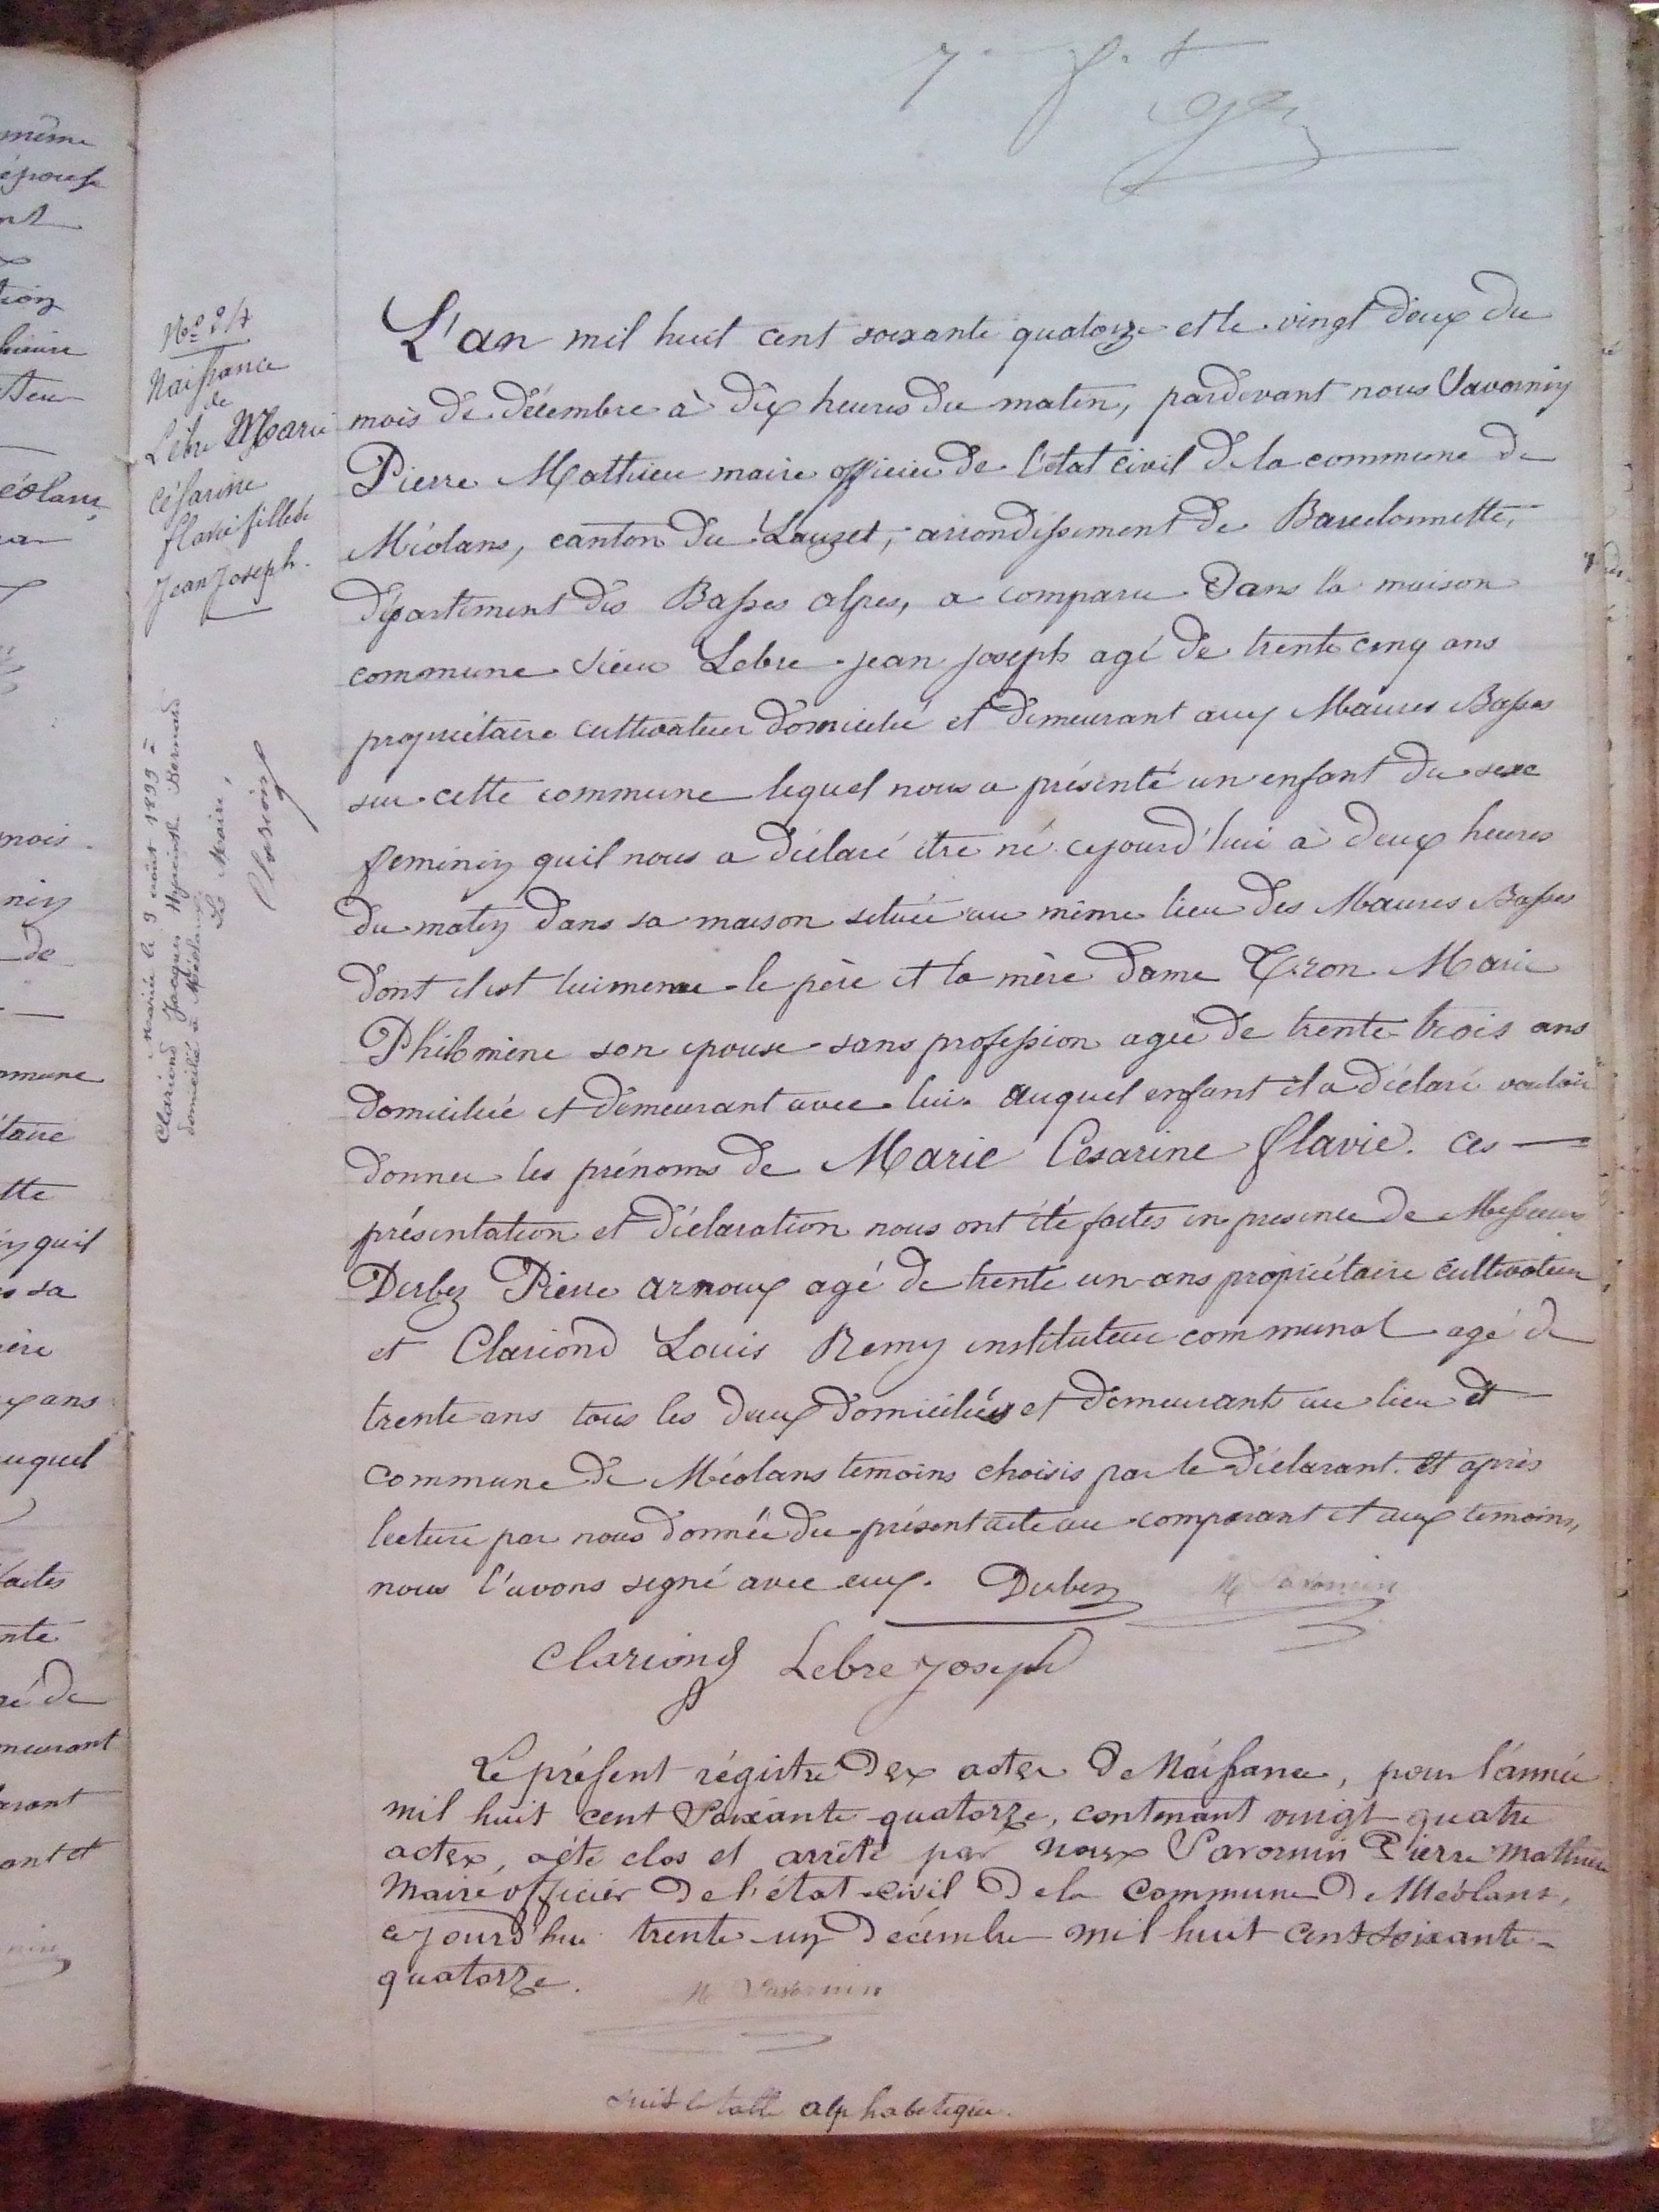 7. f. t
No 24
Naissance
de
Lèbre Marie
Césarine
flavie fille de
Jean Joseph.
Mariée le 9 août 1899 à
Clariond Jacques Hyacinthe Bernard
domicilié à Méolans,
Le Maire,
Clariond
L'an mil huit cent soixante quatorze et le vingt deux du
mois de décembre à dix heures du matin, pardevant nous Savornin
Pierre Mathieu maire officier de l'état civil de la commune de
Méolans, canton du Lauzet, arrondissement de Barcelonnette,
département des Basses alpes, a comparu dans la maison
commune sieur Lebre jean joseph agé de trente cinq ans
propriétaire cultivateur domicilié et demeurant aux Maures Basses
sur cette commune lequel nous a présenté un enfant du sexe
feminin quil nous a déclaré être né cejourd'hui à deux heures
du matin dans sa maison située au même lieu des Maures Basses
dont il est luimeme le père et la mère dame Tiron Marie
Philomène son epouse sans profession agée de trente trois ans
domiciliée et demeurant avec lui. auquel enfant il a déclaré vouloir
donner les prénoms de Marie Cesarine flavie. ces
présentation et déclaration nous ont été faites en presence de Messieurs
Derbez Pierre arnoux agé de trente un ans propriétaire cultivateur
et Clariond Louis Remy instituteur communal agé de
trente ans tous les deux domiciliés et demeurants au lieu et
commune de Méolans temoins choisis par le déclarant. et après
lecture par nous donnée du présent acte au comparant et aux temoins,
nous l'avons signé avec eux. Derbez M Savornin
Clariond Lebre joseph
Le présent régistre des actes de Naissance, pour l'année
mil huit cent Soixante quatorze, contenant vingt quatre
actes, a été clos et arrêté par nous Savornin Pierre Mathieu
Maire officier de l'état civil de la commune de Méolans,
cejourd'hui trente un Décembre mil huit cent soixante
quatorze. M Savornin
suit la table alphabetique.